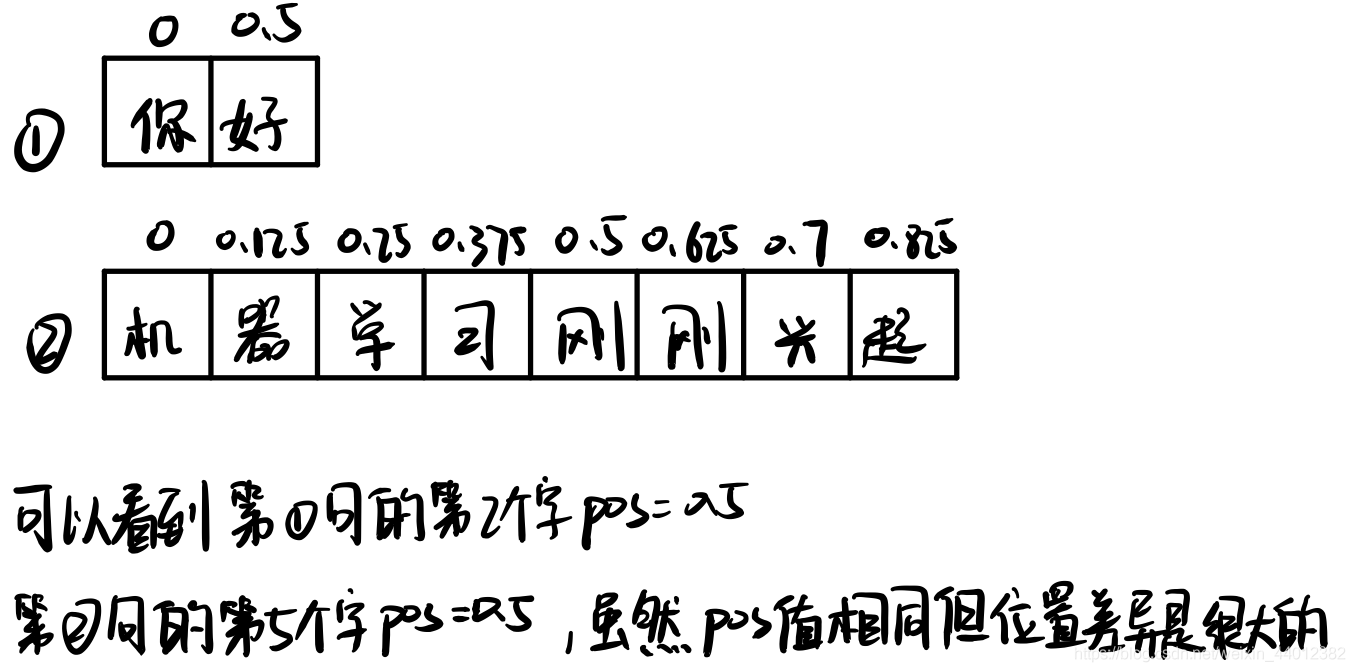 0 0.5
① 你好
0 0.125 0.25 0.375 0.5 0.625 0.7 0.825
② 机器学习刚刚兴起
可以看到第①句的第2个字pos=0.5
第②句的第5个字pos=0.5,虽然pos值相同但位置差异是很大的
https://blog.csdn.net/weixin_44012382